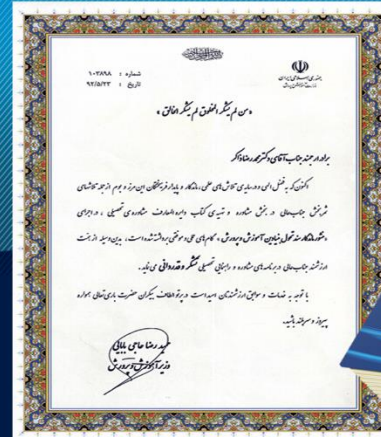 جمهوری اسلامی ایران
وزارت آموزش و پرورش
شماره : ۱۰۳۸۹۸
تاریخ : ۹۲/۵/۲۳
« من لم یشکر المخلوق لم یشکر الخالق »
برادر ارجمند جناب آقای دکتر محمدرضا ذاکر
اکنون که به فضل الهی و در سایه‌ی تلاش‌های علمی، ماندگار و پایدار فرهیختگان این مرز و بوم از جمله تلاشهای
ثمربخش جنابعالی در بخش مشاوره و تهیه‌ی کتاب دایره‌المعارف مشاوره‌ی تحصیلی ، در اجرای
«منشور ماندگار سند تحول بنیادین آموزش و پرورش» گام‌های عملی و موفقی برداشته شده است، بدین‌وسیله از زحمات
ارزشمند جنابعالی در برنامه‌های مشاوره و راهنمایی تحصیلی تشکر و قدردانی می نماید.
با توجه به خدمات و سوابق ارزشمندتان امید است در پرتو الطاف بیکران حضرت باری‌تعالی همواره
پیروز و سربلند باشید.
حمید رضا حاجی بابائی
وزیر آموزش و پرورش